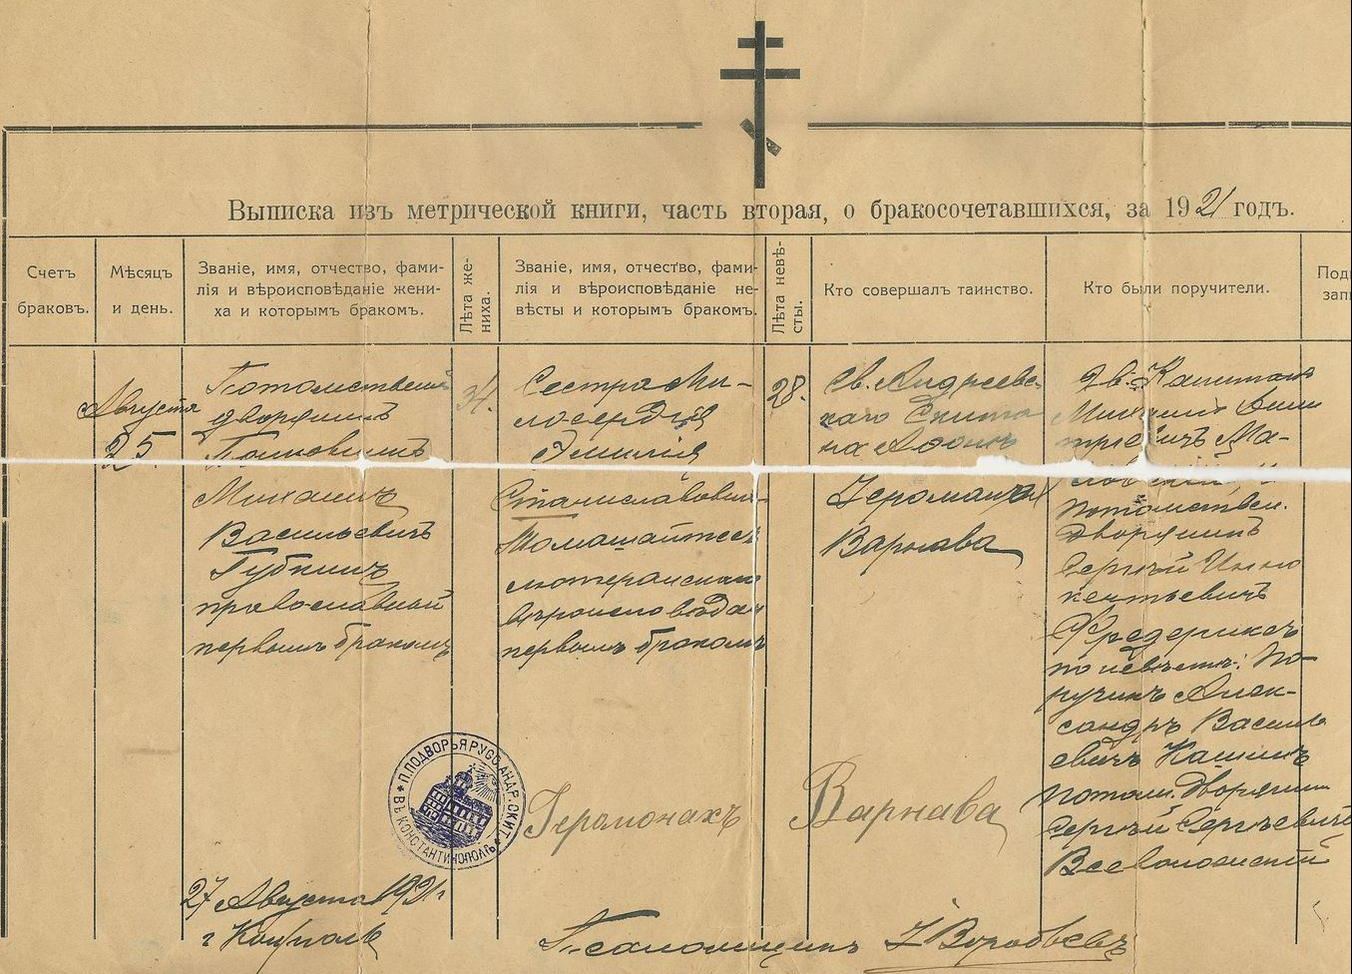 Выписка изъ метрической книги, часть вторая, о бракосочетавшихся, за 1921 годъ.
Счетъ
браковъ.
Мѣсяцъ
и день.
Званіе, имя, отчество, фами-
лія и вѣроисповѣданіе жени-
ха и которымъ бракомъ.
Лѣта же-
ниха.
Званіе, имя, отчество, фами-
лія и вѣроисповѣданіе не-
вѣсты и которымъ бракомъ.
Лѣта невѣ-
сты.
Кто совершалъ таинство.
Кто были поручители.
Под
зап
Августа
25
Потомственный
дворянинъ
Полковникъ
Михаилъ
Васильевичъ
Губкинъ
православный
первымъ бракомъ
34.
Сестра Ми-
лосердія
Эмилія
Станиславовна
лютеранскаго
вѣроисповѣдан
первымъ бракомъ
28.
Св. Андреевс-
каго Скита
на Аѳонѣ
Іеромонах
Варнава
Дв. Капитанъ
Михаилъ Дми
тріевичъ Ма-
и
потомствен.
дворянинъ
Сергѣй Инно
кентьевичъ
Фредериксъ
по невѣстѣ: По-
ручикъ Алек-
сандръ Василь
евичъ Кашинъ
потом. дворянин
Сергѣй Сергѣевичъ
Всеволожскій
П. ПОДВОРЬЯ РУСС. АНДР. СКИТ.
ВЪ КОНСТАНТИНОПОЛѢ
Іеромонахъ Варнава
27 Августа 1921 г
г Конполь
Псаломщикъ И Воробьевъ